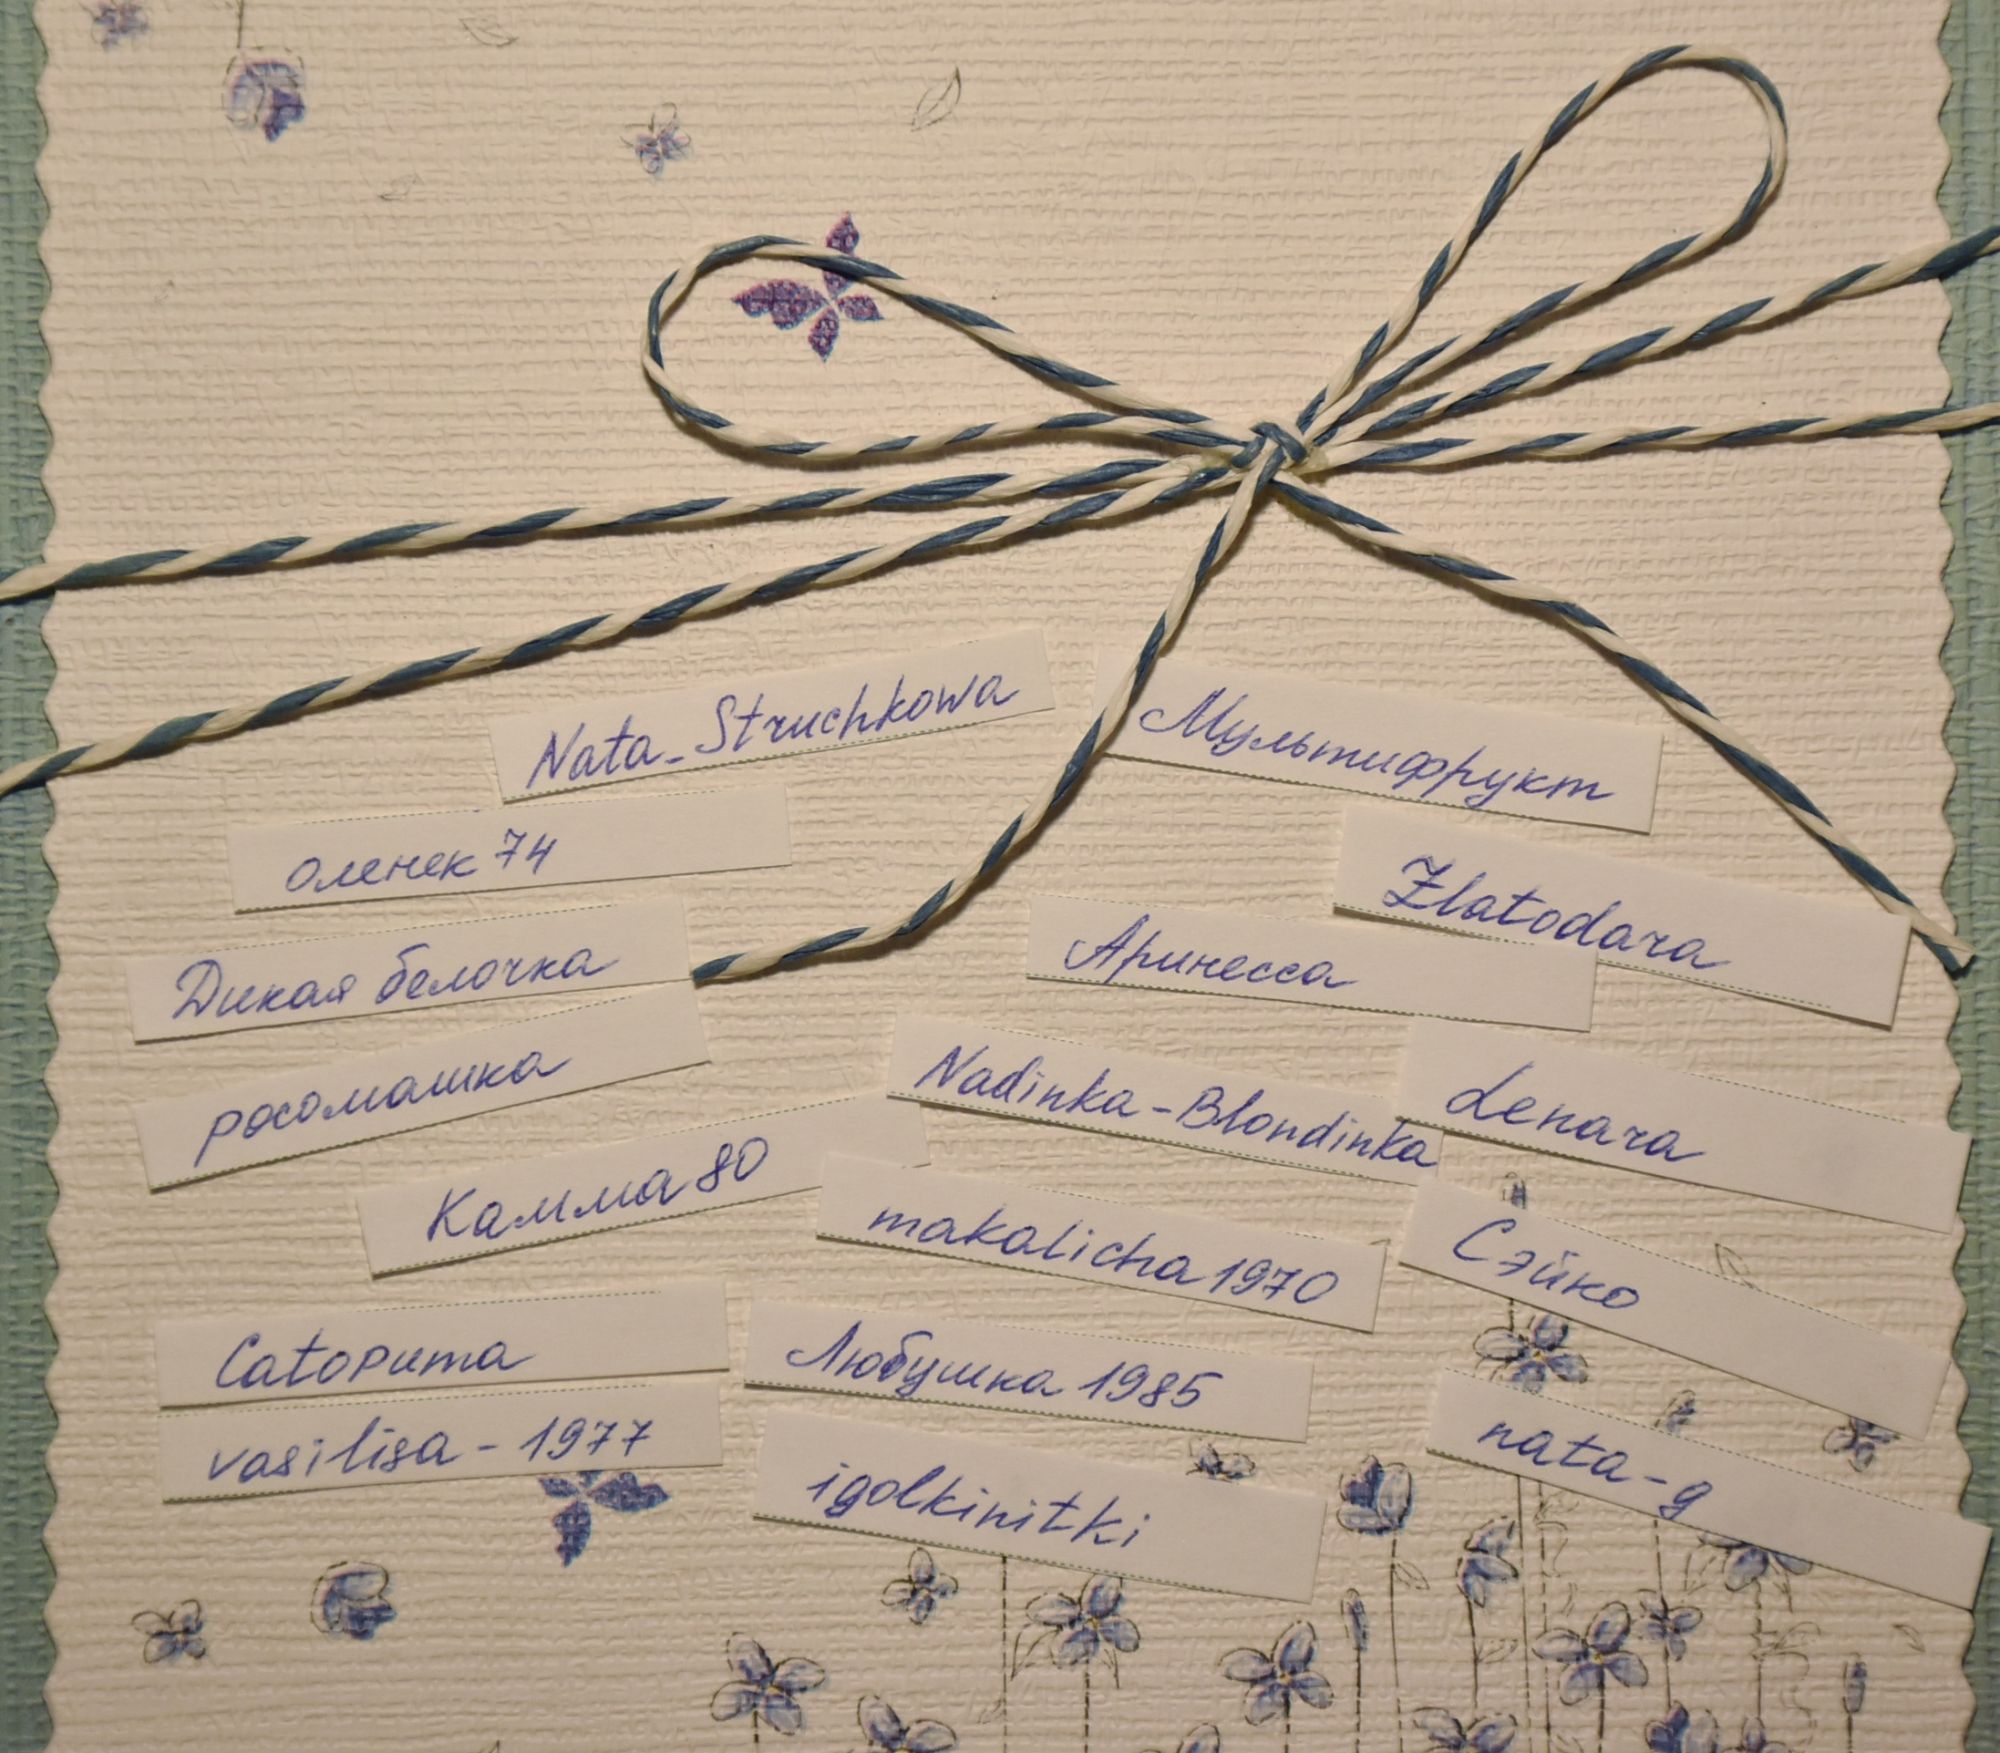 Nata_Struchkowa
Мультифрукт
оленек 74
Zlatodara
Дикая белочка
Аринесса
росомашка
Nadinka-Blondinka
Lenara
Камма 80
makalicha 1970
Сэйко
Catopuma
Любушка 1985
vasilisa-1977
nata-g
igolkinitki